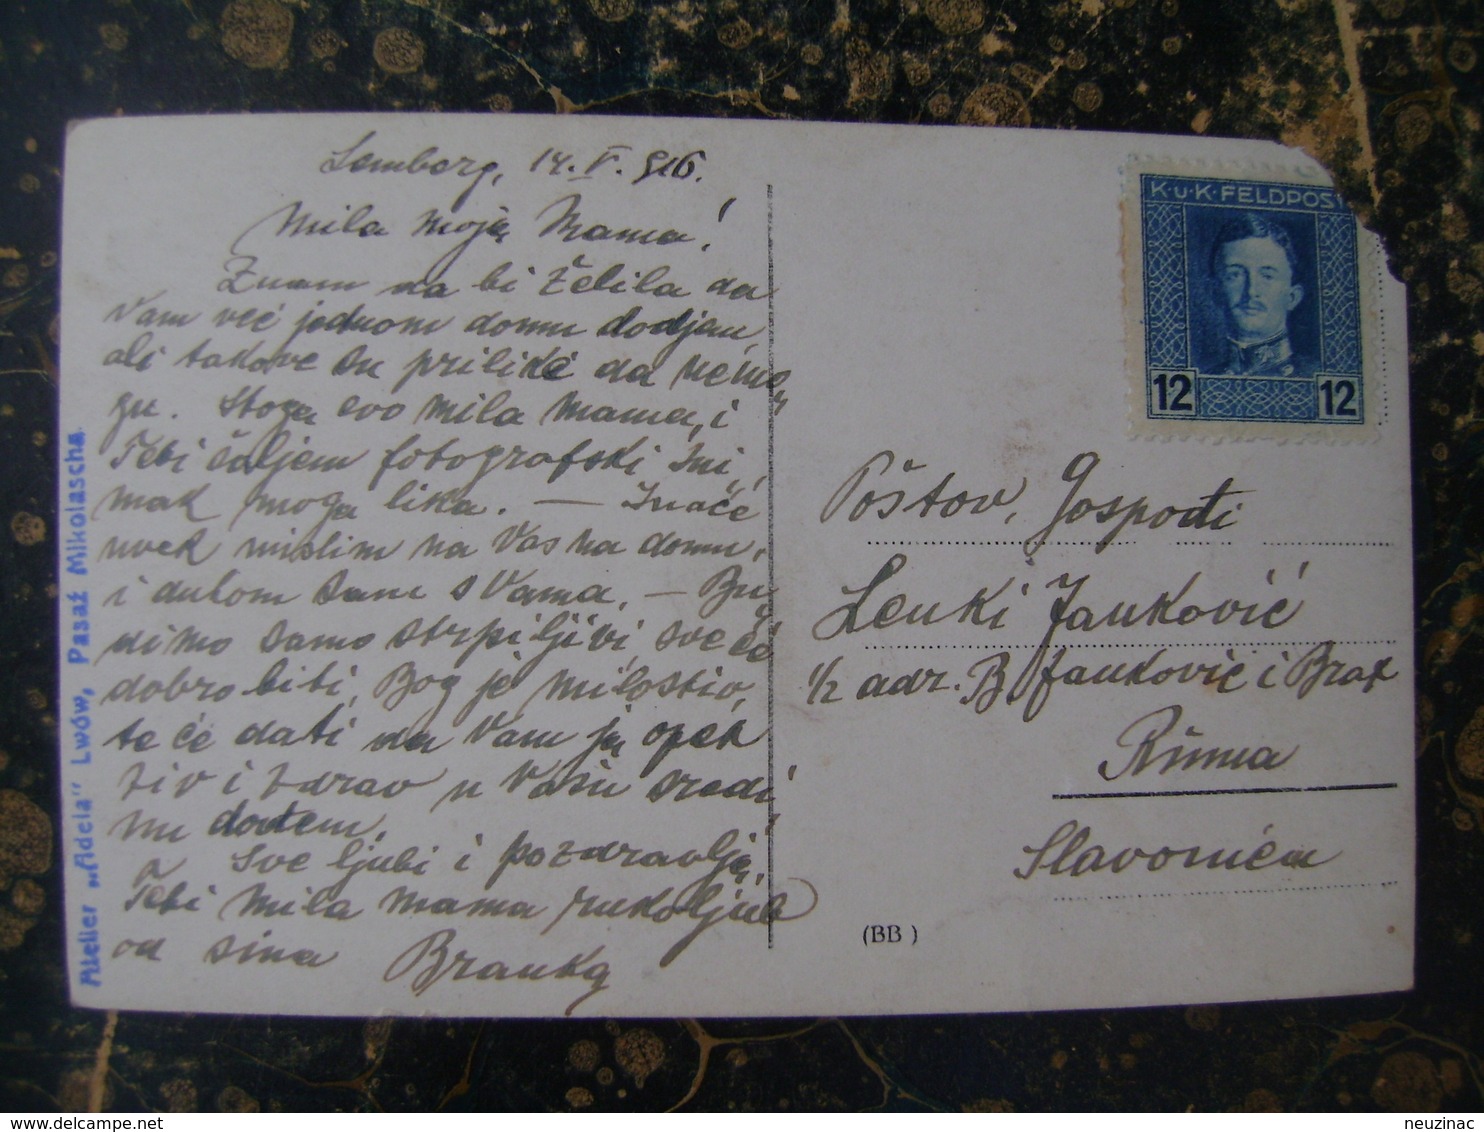 Lemberg, 14. V. 916.
Mila moja Mama!
Znam da bi želila da
Vam već jednom domu dodjem,
ali takove su prilike da nemo„
gu. Stoga evo mila mama, i
Tebi šaljem fotografski sni„
mak moga lika. — Inače
uvek mislim na Vas na domu,
i duhom sam s Vama. — Bu„
dimo samo strpiljivi, sve će
dobro biti, Bog je milostiv,
te će dati da Vam ja opet
živ i zdrav u Vašu sredi„
nu dodjem.
Sve ljubi i pozdravlja,
Tebi mila mama rukoljub
od sina Branka
Atelier „Adela" Lwów, Pasaż Mikolascha.
K.u.K. FELDPOST
12 12
Poštov. Gospođi
Lenki Janković
1/2 adr. B Janković i Brat
Ruma
Slavonien
(BB)
neuzinac
delcampe.net